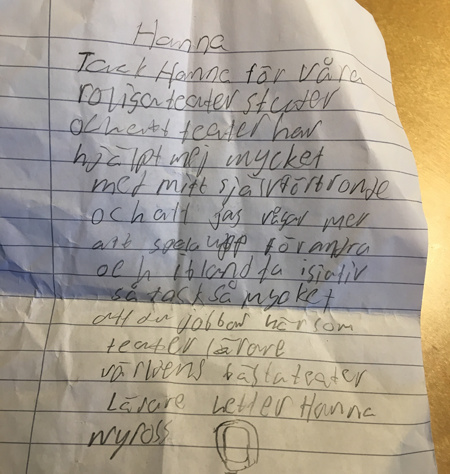 Hanna
Tack Hanna för våra
roliga teater stuter
och att teater har
hjälpt mej mycket
med mitt självförtronde
och att jag vågar mer
att spela upp för andra
och ibland ta isiativ
så tack så mycket
att du jobbar här som
teater lärare
världens bästa teater
Lärare heter Hanna
nyross